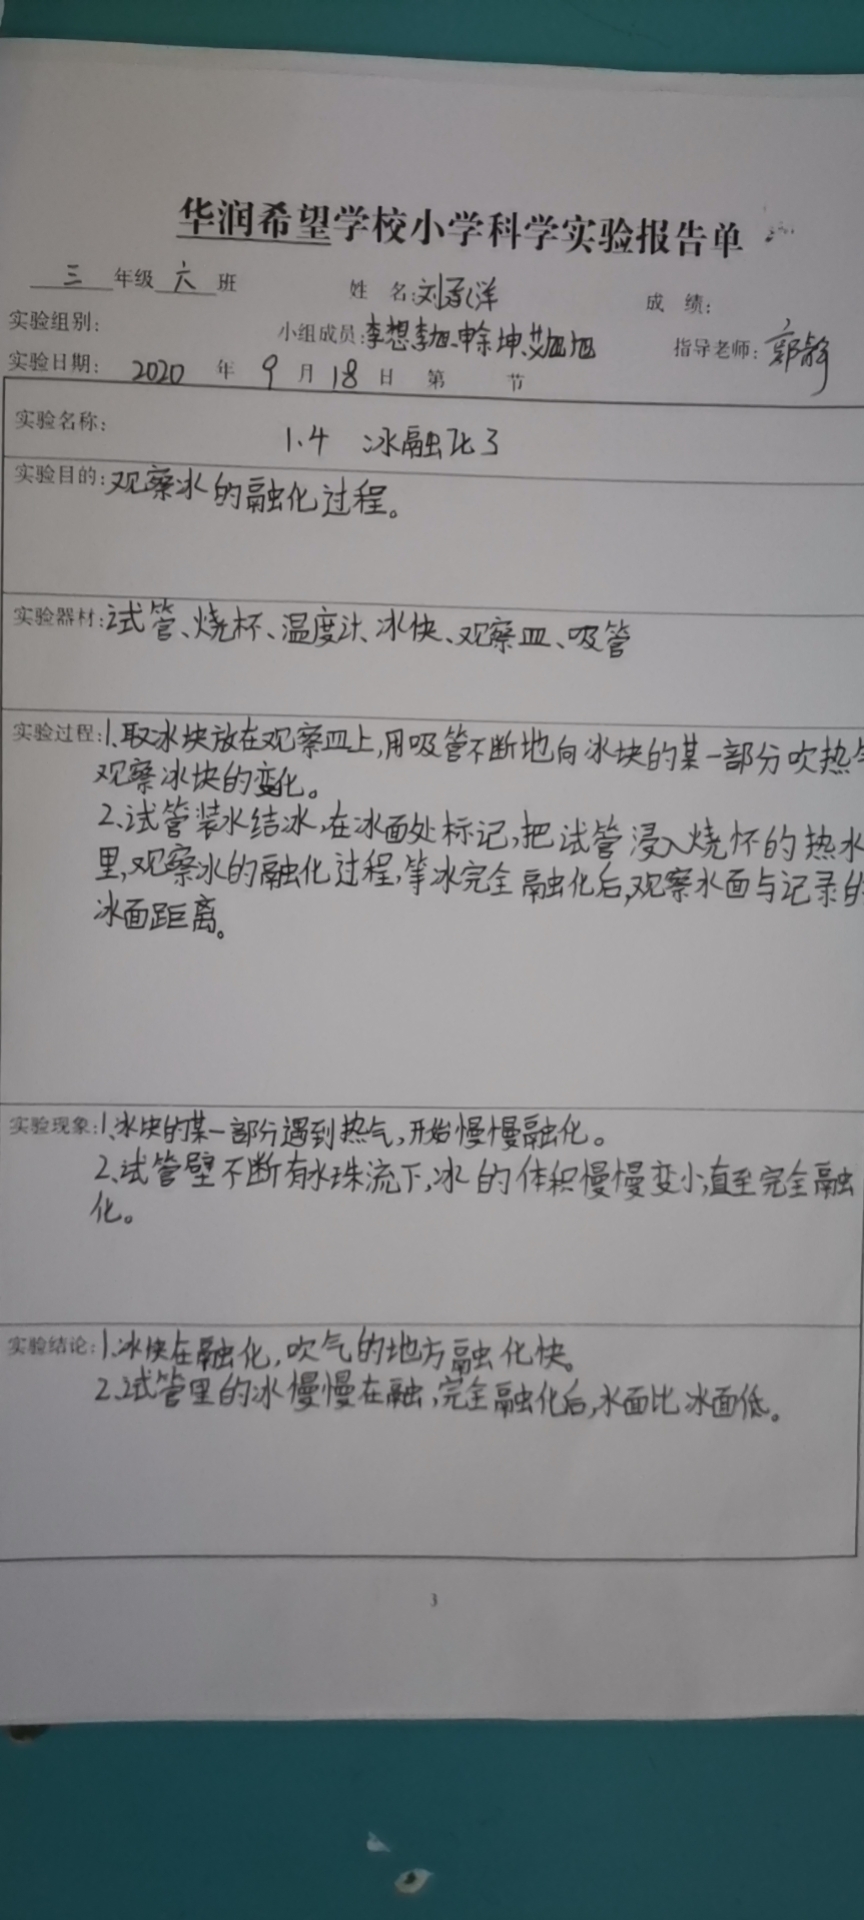 华润希望学校小学科学实验报告单
三 年级 六 班 姓 名: 刘承洋 成 绩:
实验组别: 小组成员: 李想、李旭、申余坤、艾旭旭 指导老师: 郭静
实验日期: 2020 年 9 月 18 日 第 节
实验名称: 1.4 冰融化了
实验目的: 观察冰的融化过程。
实验器材: 试管、烧杯、温度计、冰快、观察皿、吸管
实验过程: 1、取冰块放在观察皿上,用吸管不断地向冰块的某一部分吹热气
观察冰块的变化。
2、试管装水结冰,在冰面处标记,把试管浸入烧怀的热水
里,观察冰的融化过程,等冰完全融化后,观察水面与记录的
冰面距离。
实验现象: 1、冰块的某一部分遇到热气,开始慢慢融化。
2、试管壁不断有水珠流下,冰的体积慢慢变小,直至完全融
化。
实验结论: 1、冰快在融化,吹气的地方融化快。
2、试管里的冰慢慢在融,完全融化后,水面比冰面低。
3